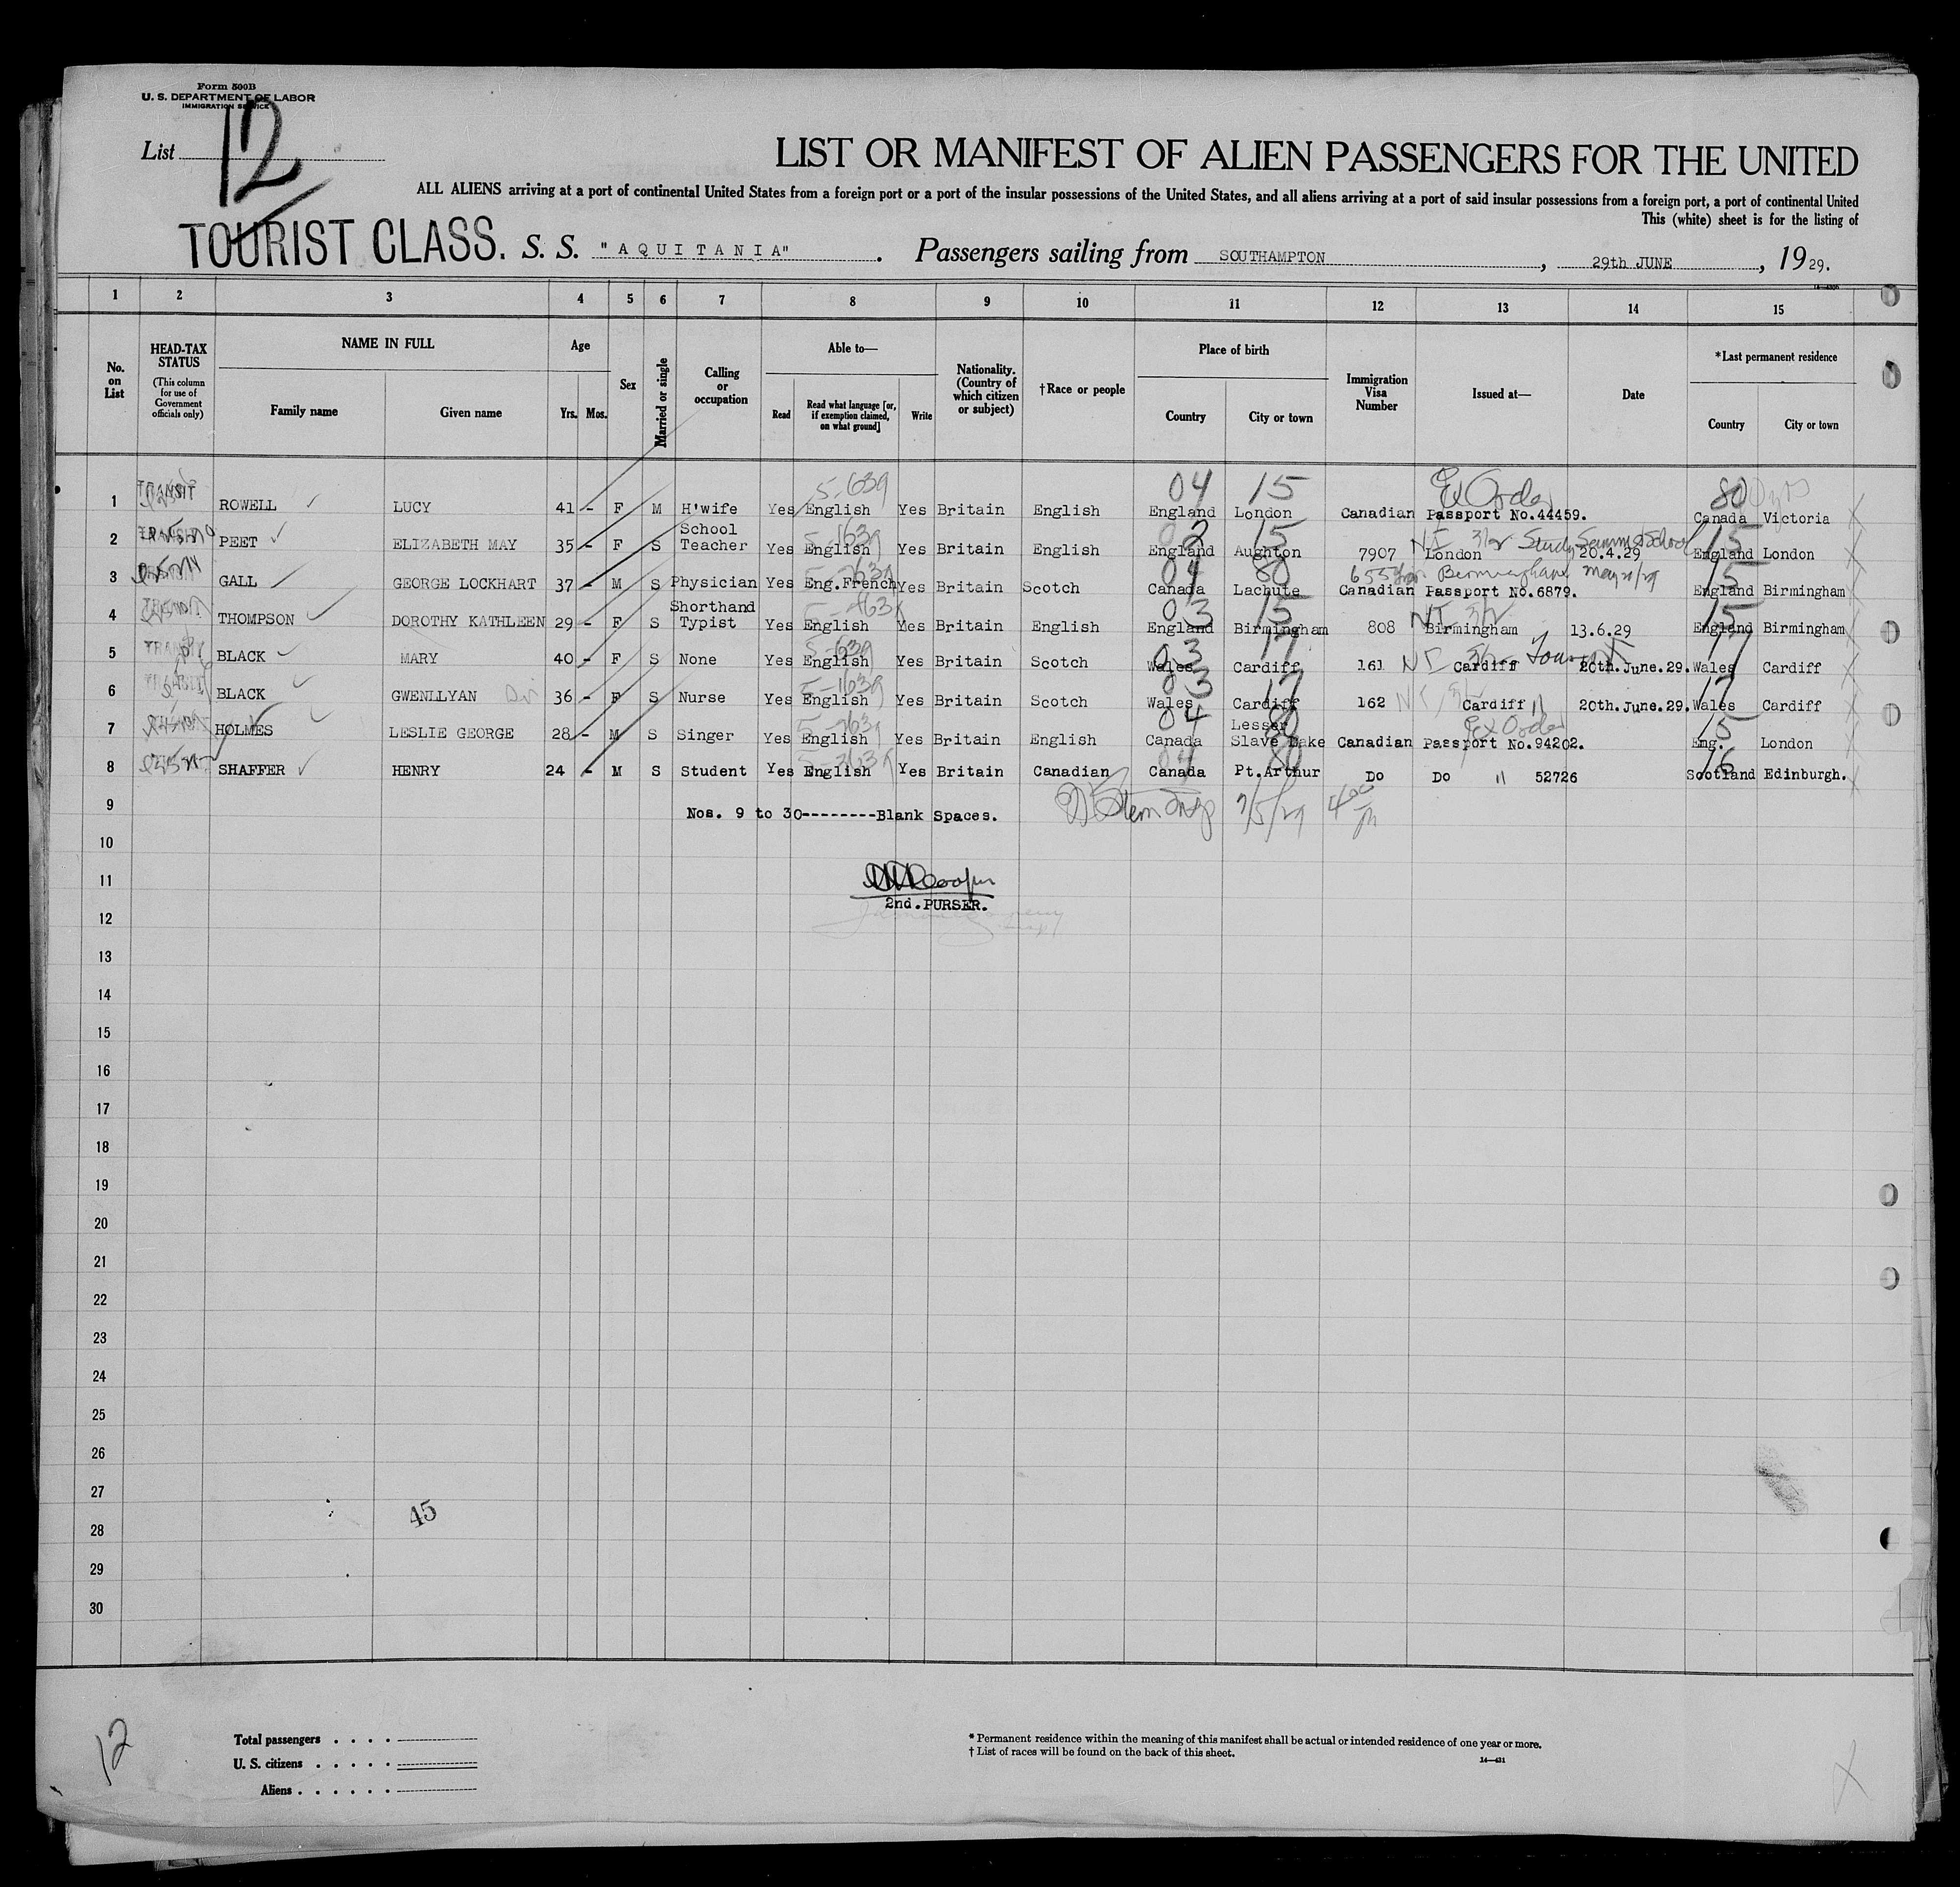 Form 500B
U. S. DEPARTMENT OF LABOR
IMMIGRATION SERVICE
List 12
LIST OR MANIFEST OF ALIEN PASSENGERS FOR THE UNITED
ALL ALIENS arriving at a port of continental United States from a foreign port or a port of the insular possessions of the United States, and all aliens arriving at a port of said insular possessions from a foreign port, a port of continental United
This (white) sheet is for the listing of
TOURIST CLASS. S. S. "AQUITANIA". Passengers sailing from SOUTHAMPTON, 29th JUNE, 1929.
1 2 3 4 5 6 7 8 9 10 11 12 13 14 15
No. on List
HEAD-TAX STATUS (This column for use of Government officials only)
NAME IN FULL Family name Given name
Age Yrs. Mos.
Sex
Married or single
Calling or occupation
Able to— Read Read what language [or, if exemption claimed, on what ground] Write
Nationality. (Country of which citizen or subject)
†Race or people
Place of birth Country City or town
Immigration Visa Number
Issued at—
Date
*Last permanent residence Country City or town
1 TRANSIT ROWELL LUCY 41 - F M H'wife Yes English 5-639 Yes Britain English 04 England 15 London Canadian Passport No.44459. Ex Order 80 Canada Victoria
2 PEET ELIZABETH MAY 35 - F S School Teacher Yes English Yes Britain English England 15 Aughton 7907 London 20.4.29 15 England London
3 GALL GEORGE LOCKHART 37 - M S Physician Yes Eng.French Yes Britain Scotch 04 Canada 80 Lachute Canadian Passport No.6879. Birmingham May 21/29 15 England Birmingham
4 THOMPSON DOROTHY KATHLEEN 29 - F S Shorthand Typist Yes English Yes Britain English 03 England 15 Birmingham 808 Birmingham 13.6.29 15 England Birmingham
5 BLACK MARY 40 - F S None Yes English 5-639 Yes Britain Scotch 03 Wales 17 Cardiff 161 Cardiff 20th.June.29. 17 Wales Cardiff
6 BLACK GWENLLYAN 36 - F S Nurse Yes English Yes Britain Scotch 03 Wales 17 Cardiff 162 Cardiff 20th.June.29. 17 Wales Cardiff
7 HOLMES LESLIE GEORGE 28 - M S Singer Yes English Yes Britain English 04 Canada Lesser Slave Lake 80 Canadian Passport No.94202. Ex Order 15 Eng. London
8 SHAFFER HENRY 24 - M S Student Yes English Yes Britain Canadian 04 Canada 80 Pt.Arthur Do Do " 52726 16 Scotland Edinburgh.
9 Nos. 9 to 30--------Blank Spaces. 7/5/29
10
11
2nd.PURSER.
12
13
14
15
16
17
18
19
20
21
22
23
24
25
26
27
45
28
29
30
12
Total passengers . . . .
U. S. citizens . . . . .
Aliens . . . . . .
* Permanent residence within the meaning of this manifest shall be actual or intended residence of one year or more.
† List of races will be found on the back of this sheet.
14—431